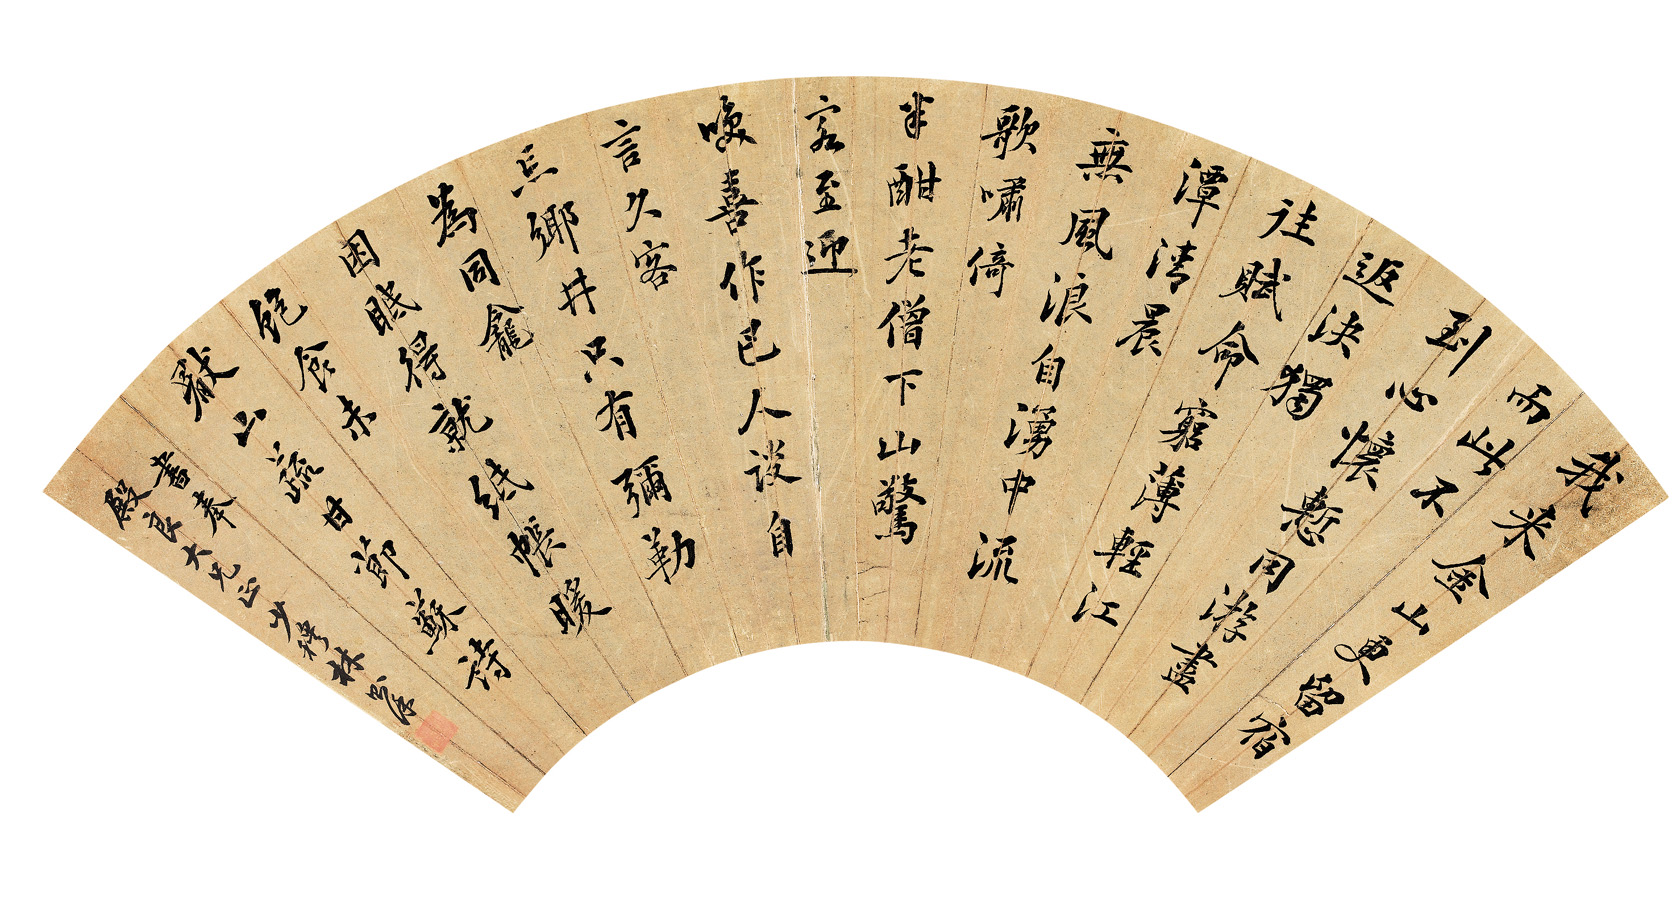 我来金山更留宿
而此不
到心懷慙同游盡
返決獨
往賦命窮薄輕江
潭清晨
無風浪自湧中流
歌嘯倚
半酣老僧下山驚
客至迎
咲喜作巴人談自
言久客
忘鄉井只有彌勒
為同龕
困眠得就紙帳暖
飽食未
厭山蔬甘節蘇詩
書奉
殿良大兄正少穆林則徐